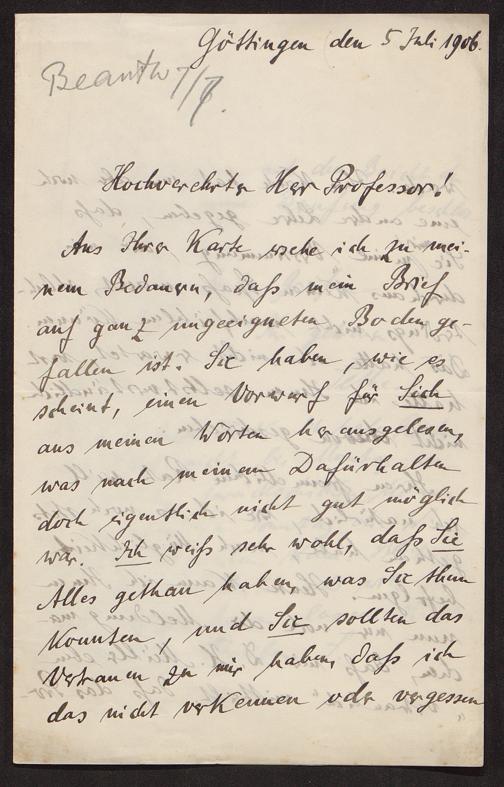 Göttingen den 5 Juli 1906.
Beantw 7/7.
Hochverehrter Herr Professor!
Aus Ihrer Karte ersehe ich zu mei-
nem Bedauern, daß mein Brief
auf ganz ungeeigneten Boden ge-
fallen ist. Sie haben, wie es
scheint, einen Vorwurf für Sich
aus meinen Worten herausgelesen,
was nach meinem Dafürhalten
doch eigentlich nicht gut möglich
war. Ich weiß sehr wohl, daß Sie
Alles gethan haben, was Sie thun
konnten, und Sie sollten das
Vertrauen zu mir haben, daß ich
das nicht verkennen oder vergessen